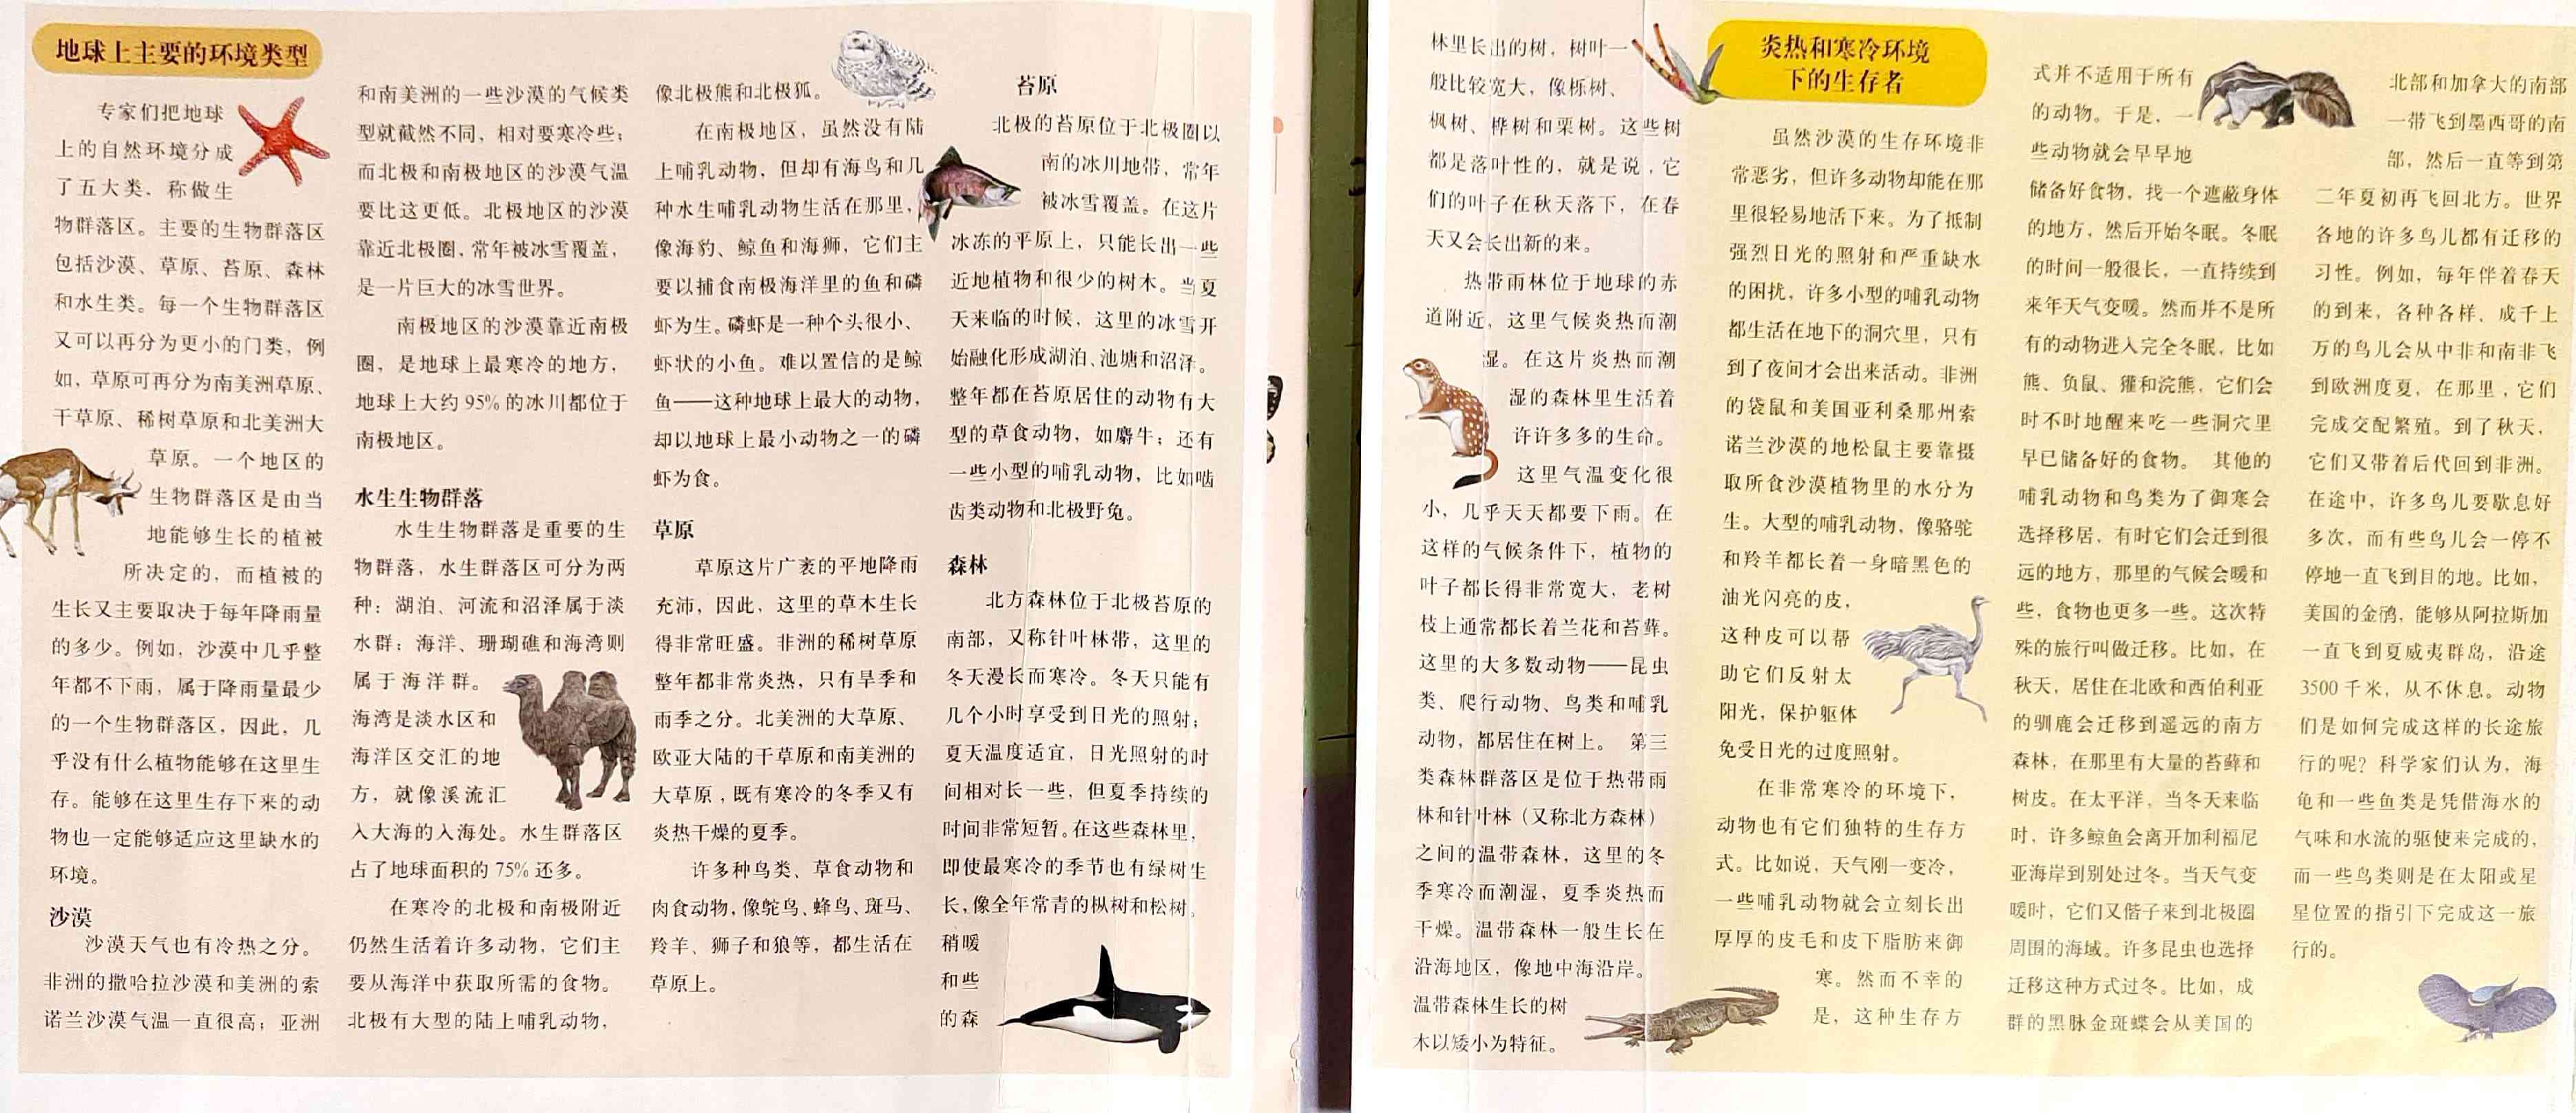 地球上主要的环境类型
专家们把地球
上的自然环境分成
了五大类，称做生
物群落区。主要的生物群落区
包括沙漠、草原、苔原、森林
和水生类。每一个生物群落区
又可以再分为更小的门类，例
如，草原可再分为南美洲草原、
干草原、稀树草原和北美洲大
草原。一个地区的
生物群落区是由当
地能够生长的植被
所决定的，而植被的
生长又主要取决于每年降雨量
的多少。例如，沙漠中几乎整
年都不下雨，属于降雨量最少
的一个生物群落区，因此，几
乎没有什么植物能够在这里生
存。能够在这里生存下来的动
物也一定能够适应这里缺水的
环境。
沙漠
沙漠天气也有冷热之分。
非洲的撒哈拉沙漠和美洲的索
诺兰沙漠气温一直很高；亚洲
和南美洲的一些沙漠的气候类
型就截然不同，相对要寒冷些；
而北极和南极地区的沙漠气温
要比这更低。北极地区的沙漠
靠近北极圈，常年被冰雪覆盖，
是一片巨大的冰雪世界。
南极地区的沙漠靠近南极
圈，是地球上最寒冷的地方，
地球上大约95%的冰川都位于
南极地区。
水生生物群落
水生生物群落是重要的生
物群落，水生群落区可分为两
种：湖泊、河流和沼泽属于淡
水群；海洋、珊瑚礁和海湾则
属于海洋群。
海湾是淡水区和
海洋区交汇的地
方，就像溪流汇
入大海的入海处。水生群落区
占了地球面积的75%还多。
在寒冷的北极和南极附近
仍然生活着许多动物，它们主
要从海洋中获取所需的食物。
北极有大型的陆上哺乳动物，
像北极熊和北极狐。
在南极地区，虽然没有陆
上哺乳动物，但却有海鸟和几
种水生哺乳动物生活在那里，
像海豹、鲸鱼和海狮，它们主
要以捕食南极海洋里的鱼和磷
虾为生。磷虾是一种个头很小、
虾状的小鱼。难以置信的是鲸
鱼——这种地球上最大的动物，
却以地球上最小动物之一的磷
虾为食。
草原
草原这片广袤的平地降雨
充沛，因此，这里的草木生长
得非常旺盛。非洲的稀树草原
整年都非常炎热，只有旱季和
雨季之分。北美洲的大草原、
欧亚大陆的干草原和南美洲的
大草原，既有寒冷的冬季又有
炎热干燥的夏季。
许多种鸟类、草食动物和
肉食动物，像鸵鸟、蜂鸟、斑马、
羚羊、狮子和狼等，都生活在
草原上。
苔原
北极的苔原位于北极圈以
南的冰川地带，常年
被冰雪覆盖。在这片
冰冻的平原上，只能长出一些
近地植物和很少的树木。当夏
天来临的时候，这里的冰雪开
始融化形成湖泊、池塘和沼泽。
整年都在苔原居住的动物有大
型的草食动物，如麝牛；还有
一些小型的哺乳动物，比如啮
齿类动物和北极野兔。
森林
北方森林位于北极苔原的
南部，又称针叶林带，这里的
冬天漫长而寒冷。冬天只能有
几个小时享受到日光的照射；
夏天温度适宜，日光照射的时
间相对长一些，但夏季持续的
时间非常短暂。在这些森林里，
即使最寒冷的季节也有绿树生
长，像全年常青的枞树和松树。
稍暖
和些
的森
林里长出的树，树叶一
般比较宽大，像栎树、
枫树、桦树和栗树。这些树
都是落叶性的，就是说，它
们的叶子在秋天落下，在春
天又会长出新的来。
热带雨林位于地球的赤
道附近，这里气候炎热而潮
湿。在这片炎热而潮
湿的森林里生活着
许许多多的生命。
这里气温变化很
小，几乎天天都要下雨。在
这样的气候条件下，植物的
叶子都长得非常宽大，老树
枝上通常都长着兰花和苔藓。
这里的大多数动物——昆虫
类、爬行动物、鸟类和哺乳
动物，都居住在树上。 第三
类森林群落区是位于热带雨
林和针叶林（又称北方森林）
之间的温带森林，这里的冬
季寒冷而潮湿，夏季炎热而
干燥。温带森林一般生长在
沿海地区，像地中海沿岸。
温带森林生长的树
木以矮小为特征。
炎热和寒冷环境
下的生存者
虽然沙漠的生存环境非
常恶劣，但许多动物却能在那
里很轻易地活下来。为了抵制
强烈日光的照射和严重缺水
的困扰，许多小型的哺乳动物
都生活在地下的洞穴里，只有
到了夜间才会出来活动。非洲
的袋鼠和美国亚利桑那州索
诺兰沙漠的地松鼠主要靠摄
取所食沙漠植物里的水分为
生。大型的哺乳动物，像骆驼
和羚羊都长着一身暗黑色的
油光闪亮的皮，
这种皮可以帮
助它们反射太
阳光，保护躯体
免受日光的过度照射。
在非常寒冷的环境下，
动物也有它们独特的生存方
式。比如说，天气刚一变冷，
一些哺乳动物就会立刻长出
厚厚的皮毛和皮下脂肪来御
寒。然而不幸的
是，这种生存方
式并不适用于所有
的动物。于是，一
些动物就会早早地
储备好食物，找一个遮蔽身体
的地方，然后开始冬眠。冬眠
的时间一般很长，一直持续到
来年天气变暖。然而并不是所
有的动物进入完全冬眠，比如
熊、负鼠、獾和浣熊，它们会
时不时地醒来吃一些洞穴里
早已储备好的食物。 其他的
哺乳动物和鸟类为了御寒会
选择移居，有时它们会迁到很
远的地方，那里的气候会暖和
些，食物也更多一些。这次特
殊的旅行叫做迁移。比如，在
秋天，居住在北欧和西伯利亚
的驯鹿会迁移到遥远的南方
森林，在那里有大量的苔藓和
树皮。在太平洋，当冬天来临
时，许多鲸鱼会离开加利福尼
亚海岸到别处过冬。当天气变
暖时，它们又偕子来到北极圈
周围的海域。许多昆虫也选择
迁移这种方式过冬。比如，成
群的黑脉金斑蝶会从美国的
北部和加拿大的南部
一带飞到墨西哥的南
部，然后一直等到第
二年夏初再飞回北方。世界
各地的许多鸟儿都有迁移的
习性。例如，每年伴着春天
的到来，各种各样、成千上
万的鸟儿会从中非和南非飞
到欧洲度夏，在那里，它们
完成交配繁殖。到了秋天，
它们又带着后代回到非洲。
在途中，许多鸟儿要歇息好
多次，而有些鸟儿会一停不
停地一直飞到目的地。比如，
美国的金鸻，能够从阿拉斯加
一直飞到夏威夷群岛，沿途
3500千米，从不休息。动物
们是如何完成这样的长途旅
行的呢？科学家们认为，海
龟和一些鱼类是凭借海水的
气味和水流的驱使来完成的，
而一些鸟类则是在太阳或星
星位置的指引下完成这一旅
行的。